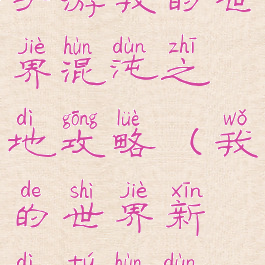 游我的世
jiè hùn dùn zhī
界混沌之
dì gōng lüè wǒ
地攻略（我
de shì jiè xīn
的世界新
dì tú hùn dùn